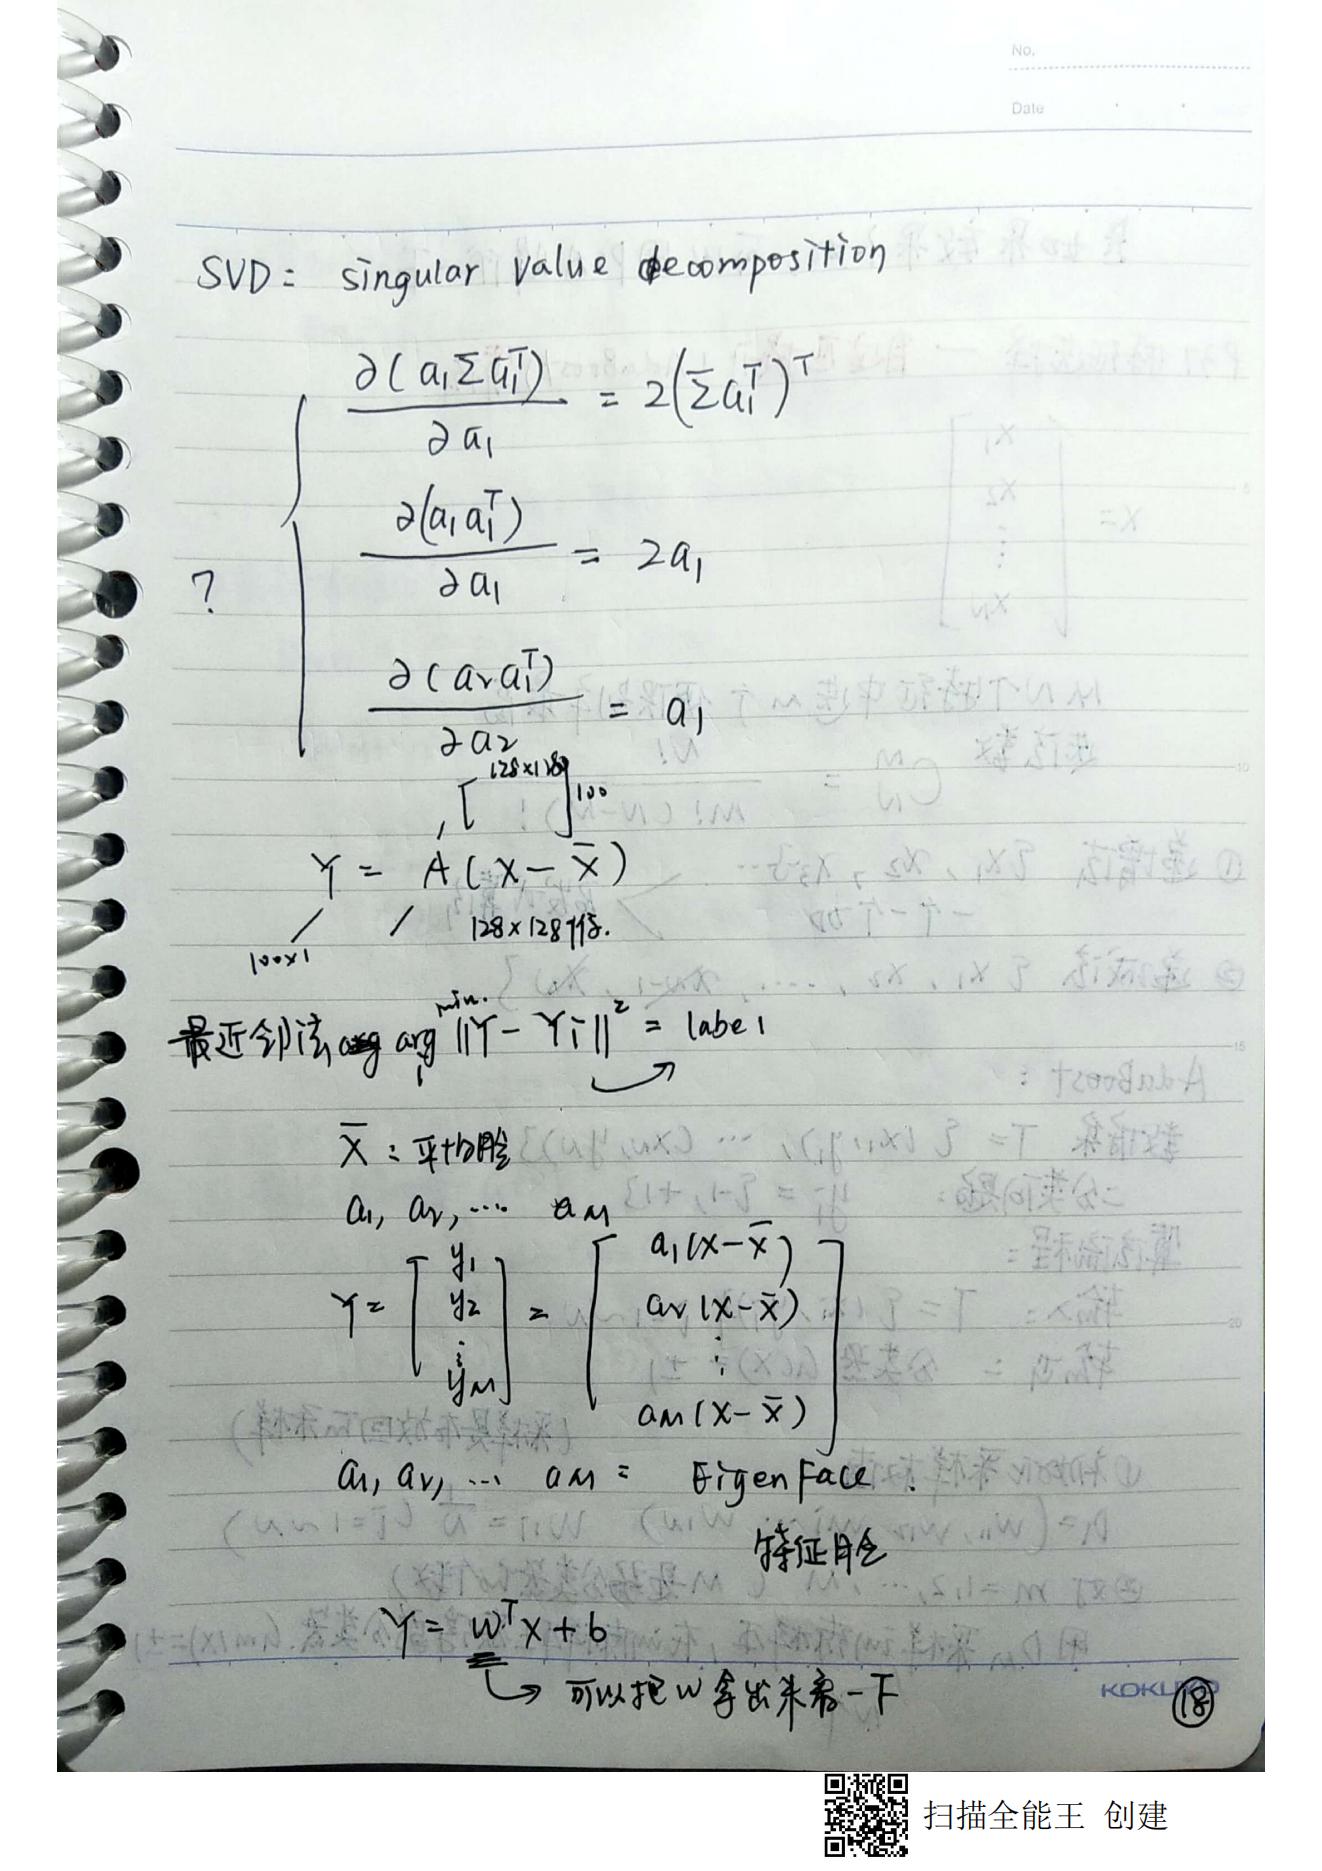 No.
Date
SVD: singular value decomposition
∂(a₁Σa₁ᵀ)/∂a₁ = 2(Σa₁ᵀ)ᵀ
∂(a₁a₁ᵀ)/∂a₁ = 2a₁
?
∂(a₂a₁ᵀ)/∂a₂ = a₁
[128×128]100
Y = A(X − X̄)
100×1 128×128维.
最近邻法 arg min. ‖Y − Yi‖² = label
i
X̄: 平均脸
a₁, a₂, … a_M
Y = [y₁ y₂ ⋮ y_M] = [a₁(X−X̄) a₂(X−X̄) ⋮ a_M(X−X̄)]
a₁, a₂, … a_M = EigenFace.
特征脸
Y = wᵀx + b
可以把W拿出来看一下
KOKUYO
18
扫描全能王 创建